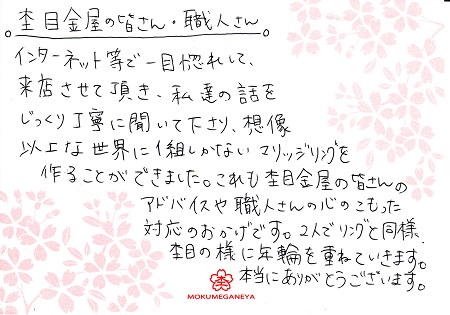 。杢目金屋の皆さん・職人さん。
インターネット等で一目惚れして、
来店させて頂き、私達の話を
じっくり丁寧に聞いて下さり、想像
以上な世界に1組しかないマリッジリングを
作ることができました。これも杢目金屋の皆さんの
アドバイスや職人さんの心のこもった
対応のおかげです。2人でリングと同様、
杢目の様に年輪を重ねていきます。
本当にありがとうございます。
杢
MOKUMEGANEYA